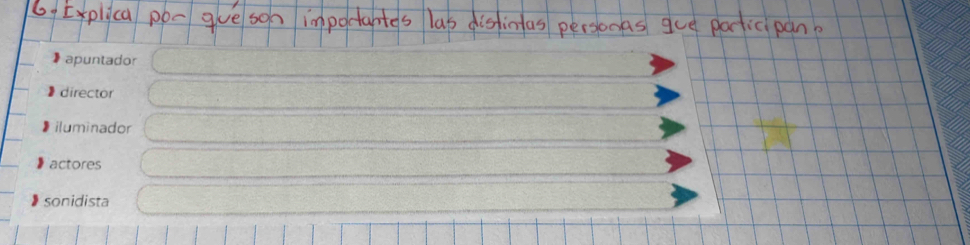 6. Explica por qué son importantes las distintas personas que participan.
apuntador
director
iluminador
actores
sonidista